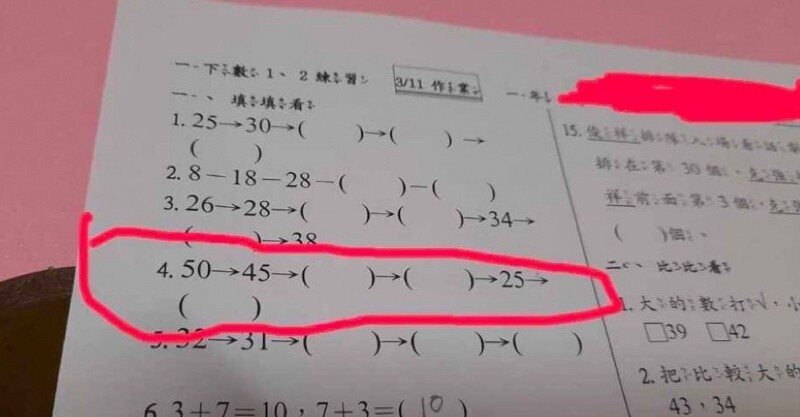 一、下數1、2練習
3/11 作業
一年
一、填填看
1. 25→30→(　　)→(　　)→
(　　)
2. 8－18－28－(　　)－(　　)
3. 26→28→(　　)→(　　)→34→
(　　)→38
4. 50→45→(　　)→(　　)→25→
(　　)
5. 32→31→(　　)→(　　)→(　　)
6. 3+7=10，7+3=(10)
15. 俊祥排隊入場看話劇
排在第30個，克強
祥前面第3個，克強
(　　)個。
二、比比看
1. 大的數打√，小
□39 □42
2. 把比較大的
43，34